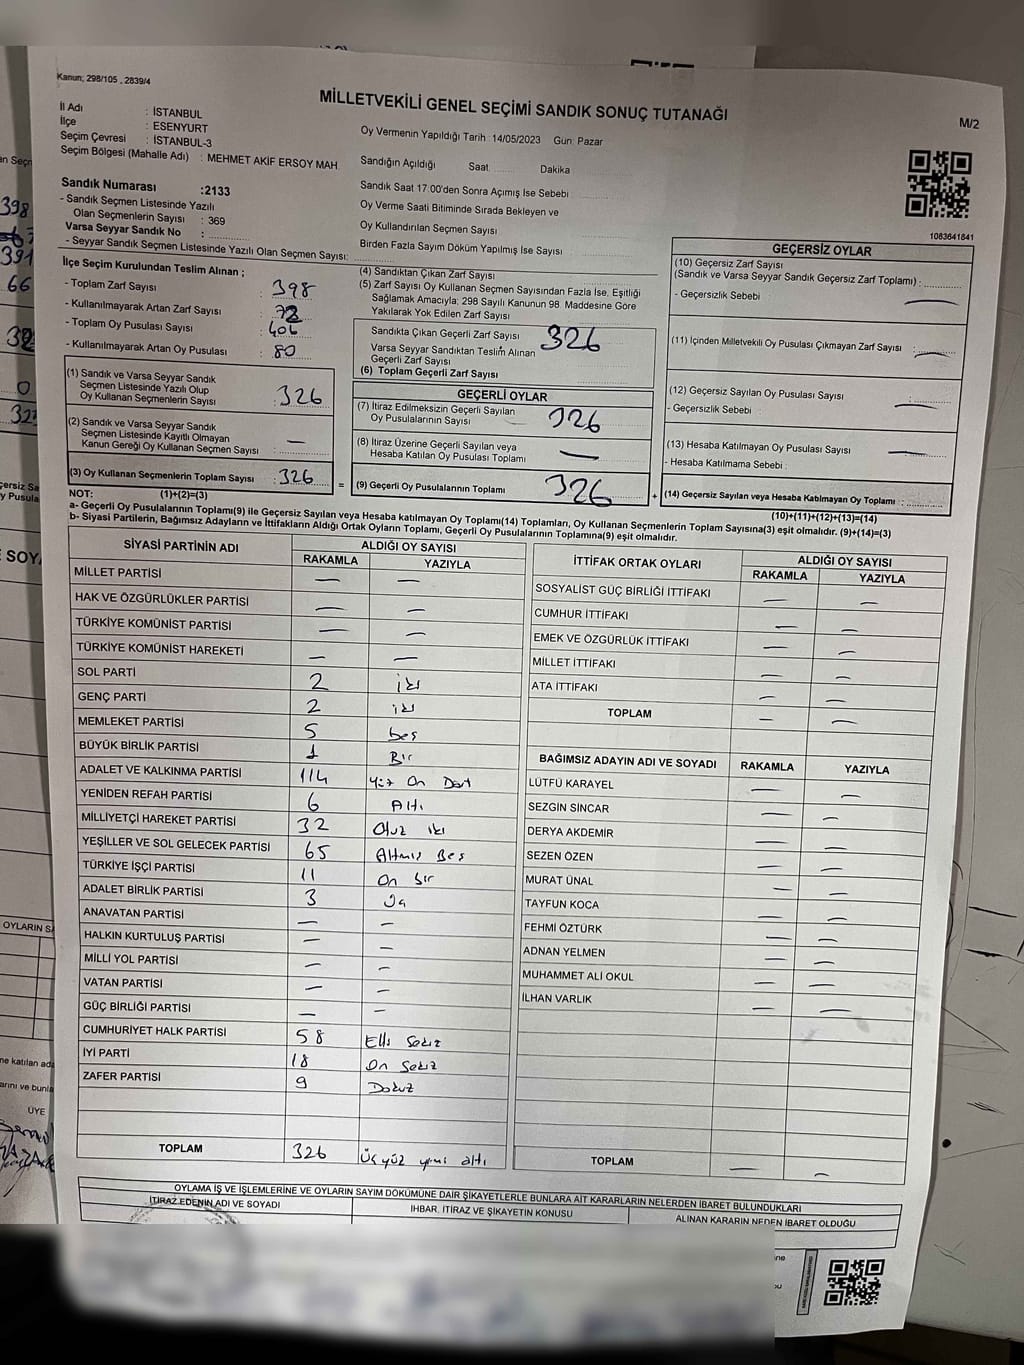 Kanun; 298/105 , 2839/4
MİLLETVEKİLİ GENEL SEÇİMİ SANDIK SONUÇ TUTANAĞI
M/2
İl Adı : İSTANBUL
İlçe : ESENYURT
Seçim Çevresi : İSTANBUL-3
Seçim Bölgesi (Mahalle Adı) : MEHMET AKİF ERSOY MAH.
Sandık Numarası :2133
- Sandık Seçmen Listesinde Yazılı
Olan Seçmenlerin Sayısı : 369
Varsa Seyyar Sandık No :
- Seyyar Sandık Seçmen Listesinde Yazılı Olan Seçmen Sayısı:
Oy Vermenin Yapıldığı Tarih : 14/05/2023 Gün: Pazar
Sandığın Açıldığı Saat Dakika
Sandık Saat 17:00'den Sonra Açımış İse Sebebi
Oy Verme Saati Bitiminde Sırada Bekleyen ve
Oy Kullandırılan Seçmen Sayısı
Birden Fazla Sayım Döküm Yapılmış İse Sayısı
1083641841
İlçe Seçim Kurulundan Teslim Alınan ;
- Toplam Zarf Sayısı : 398
- Kullanılmayarak Artan Zarf Sayısı : 72
- Toplam Oy Pusulası Sayısı : 406
- Kullanılmayarak Artan Oy Pusulası : 80
(1) Sandık ve Varsa Seyyar Sandık
Seçmen Listesinde Yazılı Olup
Oy Kullanan Seçmenlerin Sayısı : 326
(2) Sandık ve Varsa Seyyar Sandık
Seçmen Listesinde Kayıtlı Olmayan
Kanun Gereği Oy Kullanan Seçmen Sayısı : —
(3) Oy Kullanan Seçmenlerin Toplam Sayısı : 326
(1)+(2)=(3)
(4) Sandıktan Çıkan Zarf Sayısı
(5) Zarf Sayısı Oy Kullanan Seçmen Sayısından Fazla İse, Eşitliği
Sağlamak Amacıyla; 298 Sayılı Kanunun 98. Maddesine Göre
Yakılarak Yok Edilen Zarf Sayısı
Sandıkta Çıkan Geçerli Zarf Sayısı 326
Varsa Seyyar Sandıktan Teslim Alınan
Geçerli Zarf Sayısı
(6) Toplam Geçerli Zarf Sayısı
GEÇERLİ OYLAR
(7) İtiraz Edilmeksizin Geçerli Sayılan
Oy Pusulalarının Sayısı 326
(8) İtiraz Üzerine Geçerli Sayılan veya
Hesaba Katılan Oy Pusulası Toplamı —
= (9) Geçerli Oy Pusulalarının Toplamı 326
GEÇERSİZ OYLAR
(10) Geçersiz Zarf Sayısı
(Sandık ve Varsa Seyyar Sandık Geçersiz Zarf Toplamı) :
- Geçersizlik Sebebi —
(11) İçinden Milletvekili Oy Pusulası Çıkmayan Zarf Sayısı : —
(12) Geçersiz Sayılan Oy Pusulası Sayısı :
- Geçersizlik Sebebi : —
(13) Hesaba Katılmayan Oy Pusulası Sayısı : —
- Hesaba Katılmama Sebebi :
+ (14) Geçersiz Sayılan veya Hesaba Katılmayan Oy Toplamı :
(10)+(11)+(12)+(13)=(14)
NOT:
a- Geçerli Oy Pusulalarının Toplamı(9) ile Geçersiz Sayılan veya Hesaba Katılmayan Oy Toplamı(14) Toplamları, Oy Kullanan Seçmenlerin Toplam Sayısına(3) eşit olmalıdır. (9)+(14)=(3)
b- Siyasi Partilerin, Bağımsız Adayların ve İttifakların Aldığı Ortak Oyların Toplamı, Geçerli Oy Pusulalarının Toplamına(9) eşit olmalıdır.
SİYASİ PARTİNİN ADI ALDIĞI OY SAYISI
RAKAMLA YAZIYLA
MİLLET PARTİSİ — —
HAK VE ÖZGÜRLÜKLER PARTİSİ — —
TÜRKİYE KOMÜNİST PARTİSİ — —
TÜRKİYE KOMÜNİST HAREKETİ — —
SOL PARTİ 2 iki
GENÇ PARTİ 2 iki
MEMLEKET PARTİSİ 5 beş
BÜYÜK BİRLİK PARTİSİ 1 Bir
ADALET VE KALKINMA PARTİSİ 114 Yüz On Dört
YENİDEN REFAH PARTİSİ 6 Altı
MİLLİYETÇİ HAREKET PARTİSİ 32 Otuz iki
YEŞİLLER VE SOL GELECEK PARTİSİ 65 Altmış Beş
TÜRKİYE İŞÇİ PARTİSİ 11 On bir
ADALET BİRLİK PARTİSİ 3 Üç
ANAVATAN PARTİSİ — —
HALKIN KURTULUŞ PARTİSİ — —
MİLLİ YOL PARTİSİ — —
VATAN PARTİSİ — —
GÜÇ BİRLİĞİ PARTİSİ — —
CUMHURİYET HALK PARTİSİ 58 Elli Sekiz
İYİ PARTİ 18 On Sekiz
ZAFER PARTİSİ 9 Dokuz
TOPLAM 326 Üçyüz yirmi altı
İTTİFAK ORTAK OYLARI ALDIĞI OY SAYISI
RAKAMLA YAZIYLA
SOSYALİST GÜÇ BİRLİĞİ İTTİFAKI — —
CUMHUR İTTİFAKI — —
EMEK VE ÖZGÜRLÜK İTTİFAKI — —
MİLLET İTTİFAKI — —
ATA İTTİFAKI — —
TOPLAM — —
BAĞIMSIZ ADAYIN ADI VE SOYADI RAKAMLA YAZIYLA
LÜTFÜ KARAYEL — —
SEZGİN SİNCAR — —
DERYA AKDEMİR — —
SEZEN ÖZEN — —
MURAT ÜNAL — —
TAYFUN KOCA — —
FEHMİ ÖZTÜRK — —
ADNAN YELMEN — —
MUHAMMET ALİ OKUL — —
İLHAN VARLIK — —
TOPLAM — —
OYLAMA İŞ VE İŞLEMLERİNE VE OYLARIN SAYIM DÖKÜMÜNE DAİR ŞİKAYETLERLE BUNLARA AİT KARARLARIN NELERDEN İBARET BULUNDUKLARI
İTİRAZ EDENİN ADI VE SOYADI
İHBAR, İTİRAZ VE ŞİKAYETİN KONUSU
ALINAN KARARIN NEDEN İBARET OLDUĞU